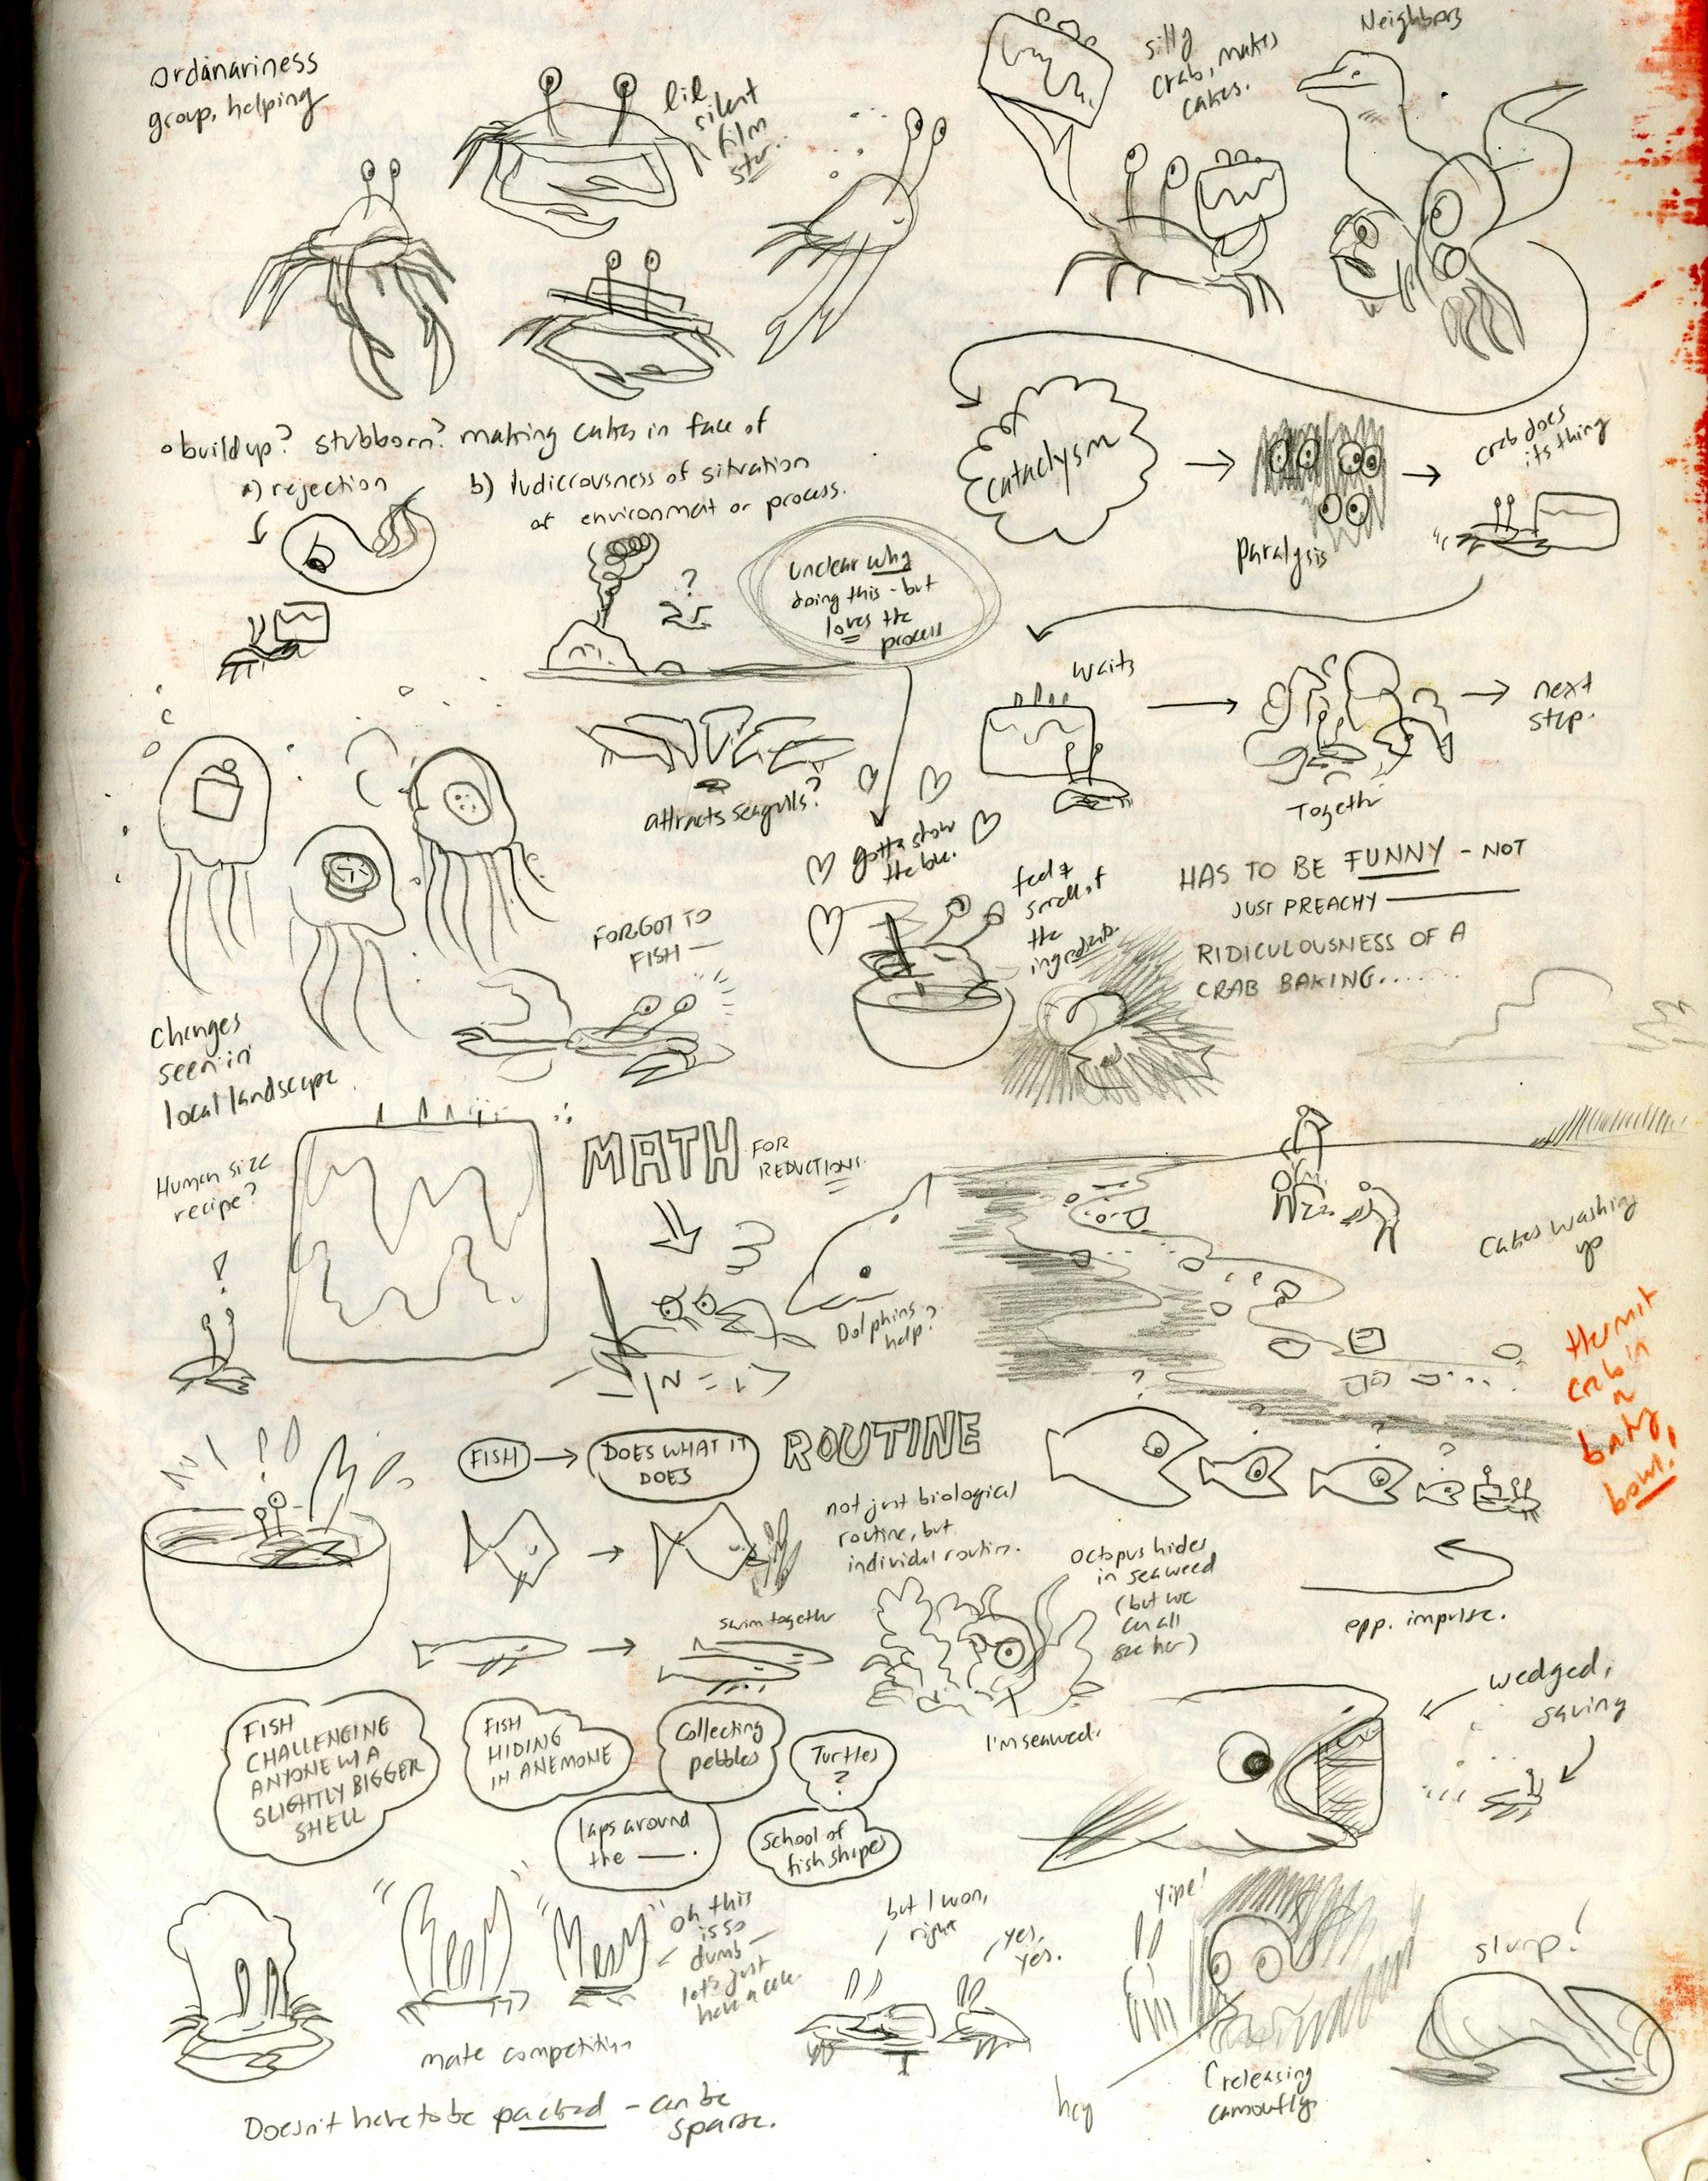 Ordinariness
group, helping
lil
silent
film
star.
silly
crab, makes
cakes.
Neighbors
build up? stubborn? making cakes in face of
a) rejection
b) ludicrousness of situation
of environment or process.
cataclysm
paralysis
crab does
its thing
?
unclear why
doing this - but
loves the
process
waits
Together
next
step.
attracts seagulls?
gotta show
the love.
feel &
smell of
the
ingredients.
HAS TO BE FUNNY - NOT
JUST PREACHY
RIDICULOUSNESS OF A
CRAB BAKING......
FORGOT TO
FISH —
Changes
seen in
local landscape.
Human size
recipe?
!
MATH FOR
REDUCTIONS.
Dolphins
help?
Cakes washing
up
Hermit
crab in
a
batty
bowl!
FISH
DOES WHAT IT
DOES
ROUTINE
not just biological
routine, but
individul routin.
swim together
Octopus hides
in seaweed
(but we
can all
see her)
I'm seaweed.
? ? ? ?
opp. impulse.
wedged,
saving
FISH
CHALLENGING
ANYONE W/ A
SLIGHTLY BIGGER
SHELL
FISH
HIDING
IN ANEMONE
Collecting
pebbles
Turtles
?
laps around
the ___.
School of
fish shapes
Oh this
is so
dumb —
let's just
have a cake.
mate competition
but I won,
right
yes,
yes.
Yipe!
hey
releasing
slurp!
Doesn't have to be packed - can be
sparse.